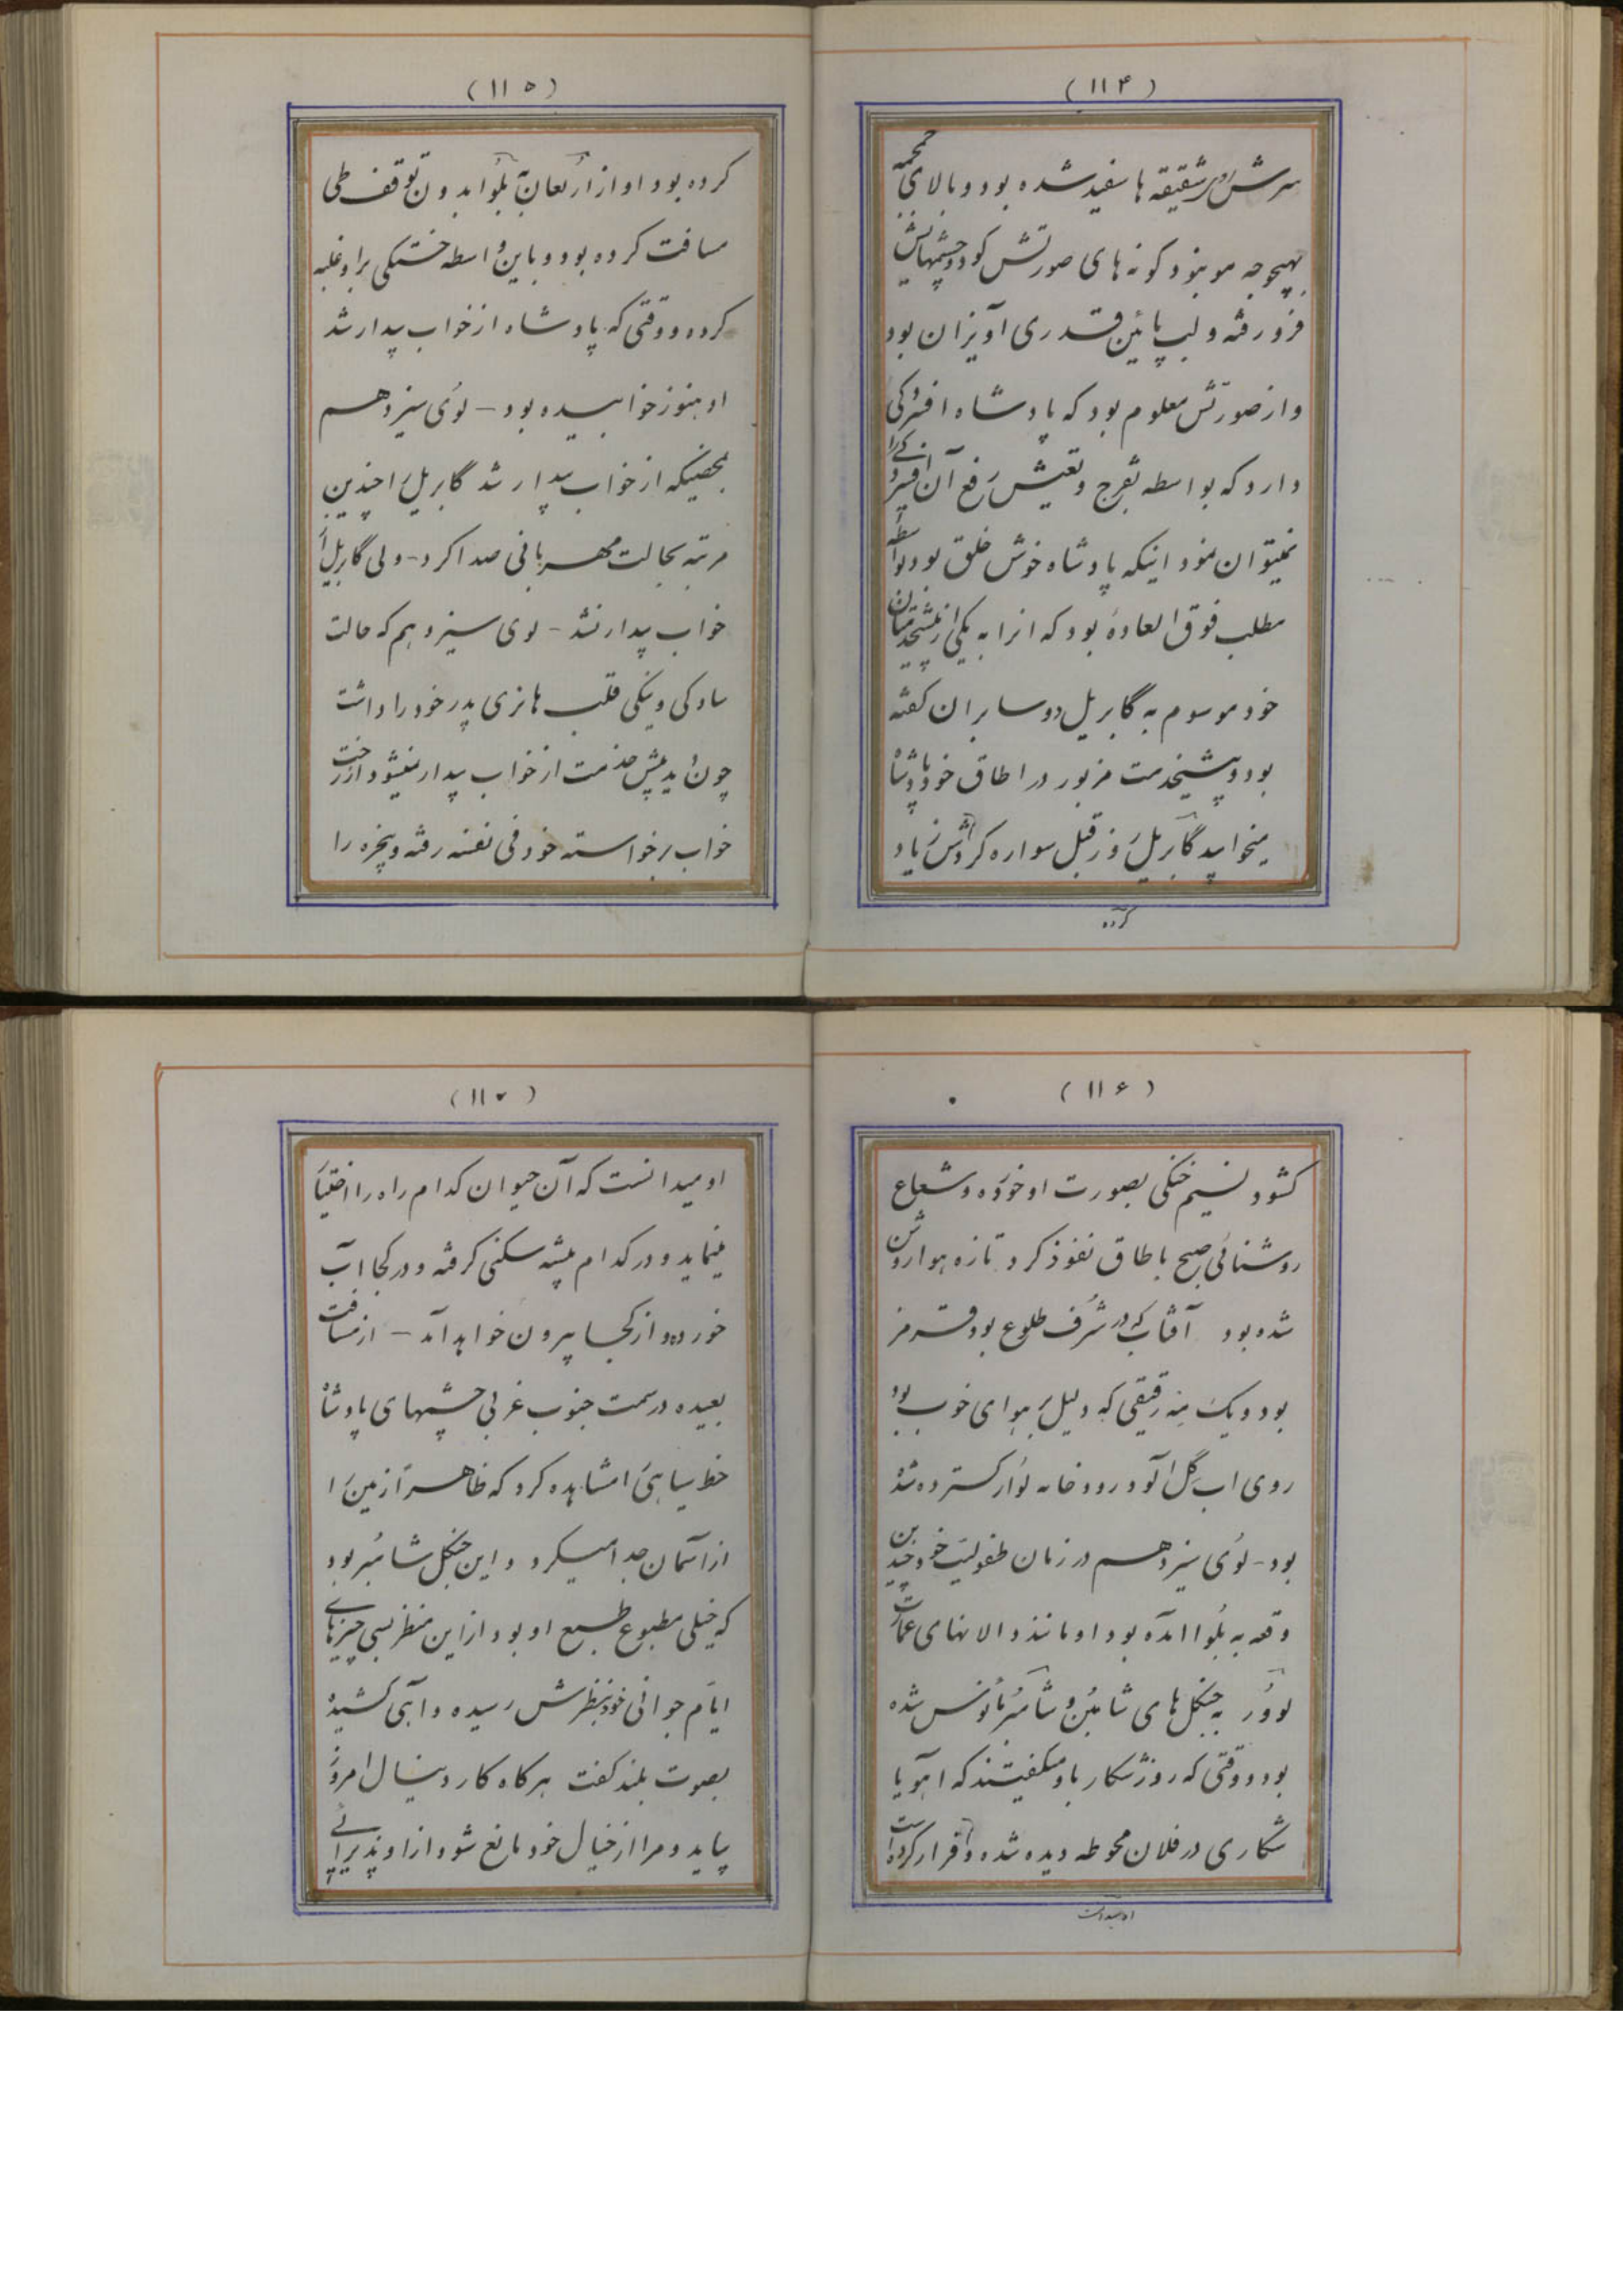 (۱۱۴)
سرش در شقیقه ها سفید شده بود و بالای جمجمه
بهیچوجه مو نبود گونه های صورتش گود و چشمهایش
فرو رفته و لب پائین قدری آویزان بود
و از صورتش معلوم بود که پادشاه افسردگی
دارد که بواسطه تفرج و تعیش رفع آن افسردگی را
نمیتوان نمود اینکه پادشاه خوش خلق بود بواسطه
مطلب فوق العاده بود که انرا به یکی از پیشخدمتان
خود موسوم به گابریل دوسابران گفته
بود و پیشخدمت مزبور در اطاق خود پادشاه
میخوابید گابریل روز قبل سواره گردش زیاد
کرده
(۱۱۵)
کرده بود او از ارلعان به بلوا بدون توقف طی
مسافت کرده بود و باین واسطه خستگی بر او غلبه
کرده و وقتی که پادشاه از خواب بیدار شد
او هنوز خوابیده بود - لوی سیزدهم
بمحضیکه از خواب بیدار شد گابریل را چندین
مرتبه بحالت مهربانی صدا کرد - ولی گابریل از
خواب بیدار نشد - لوی سیزدهم که حالت
سادگی و نیکی قلب هانری پدر خود را داشت
چون دید پیشخدمت از خواب بیدار نمیشود از رخت
خواب برخواسته خود فی نفسه رفته و پنجره را
(۱۱۶)
گشود نسیم خنکی بصورت او خورده و شعاع
روشنائی صبح باطاق نفوذ کرد تازه هوا روشن
شده بود آفتاب که در شرف طلوع بود قرمز
بود و یک مه رقیقی که دلیل بر هوای خوب بود
روی اب گل آلود رودخانه لوار گسترده شده
بود - لوی سیزدهم در زمان طفولیت خود چندین
دفعه به بلوا آمده بود او مانند دالانهای عمارت
لوور به جنگل های شامبُر و شامبر مأنوس شده
بود و وقتی که روز شکار باو میگفتند که اهو یا
شکاری در فلان محوطه دیده شده و قرار کرده است
او میدانست
(۱۱۷)
او میدانست که آن حیوان کدام راه را اختیار
مینماید و در کدام بیشه سکنی گرفته و در کجا آب
خورده و از کجا بیرون خواهد آمد - از مسافت
بعیده در سمت جنوب غربی چشمهای پادشاه
خط سیاهی را مشاهده کرد که ظاهراً زمین را
از آسمان جدا میکرد و این جنگل شامبُر بود
که خیلی مطبوع طبع او بود از این منظر بسی چیزهای
ایام جوانی خود بنظرش رسیده و آهی کشیده
بصوت بلند گفت هر گاه کاردینال امروز
بیاید و مرا از خیال خود مانع شود از او پذیرائی